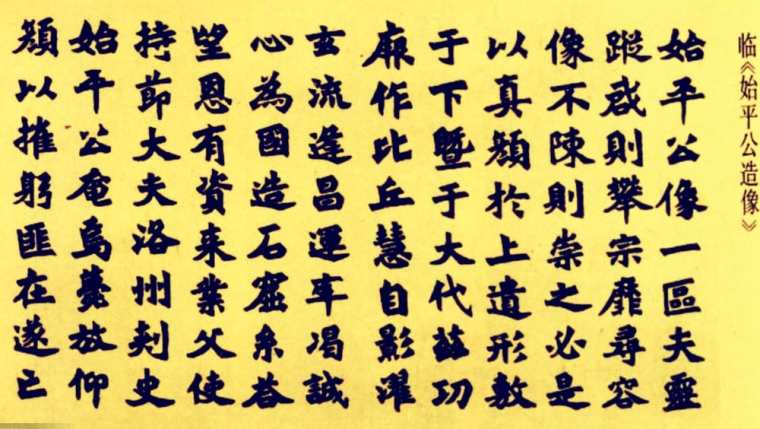 临《始平公造像》
始平公像一區夫靈
蹤啟則攀宗靡尋容
像不陳則崇之必是
以真顏於上遺形敷
于下暨于大代茲功
厥作比丘慧自影濯
玄流逢昌運率渴誠
心為國造石窟系答
望恩有資来業父使
持節大夫洛州刾史
始平公奄焉薨放仰
顏以摧躬匪在遂亡